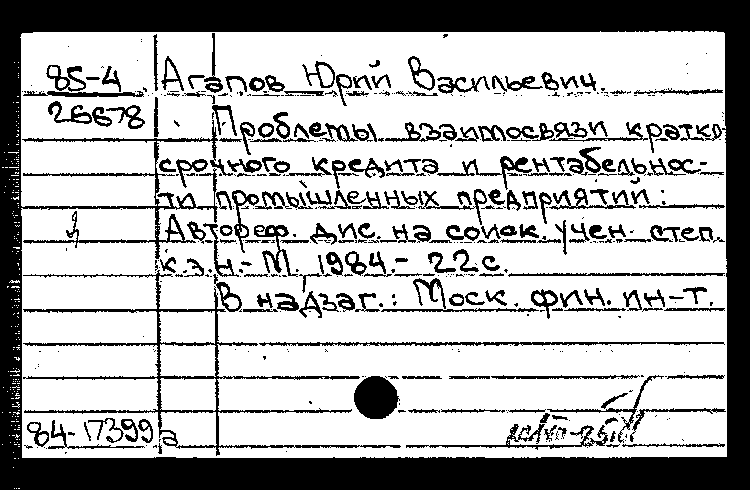 85-4 Агапов Юрий Васильевич.
26678 Проблемы взаимосвязи кратко
срочного кредита и рентабельнос-
ти промышленных предприятий:
Автореф. дис. на соиск. учен. степ.
к.э.н.- М., 1984.- 22 с.
В надзаг.: Моск. фин. ин-т.
84-17399 а